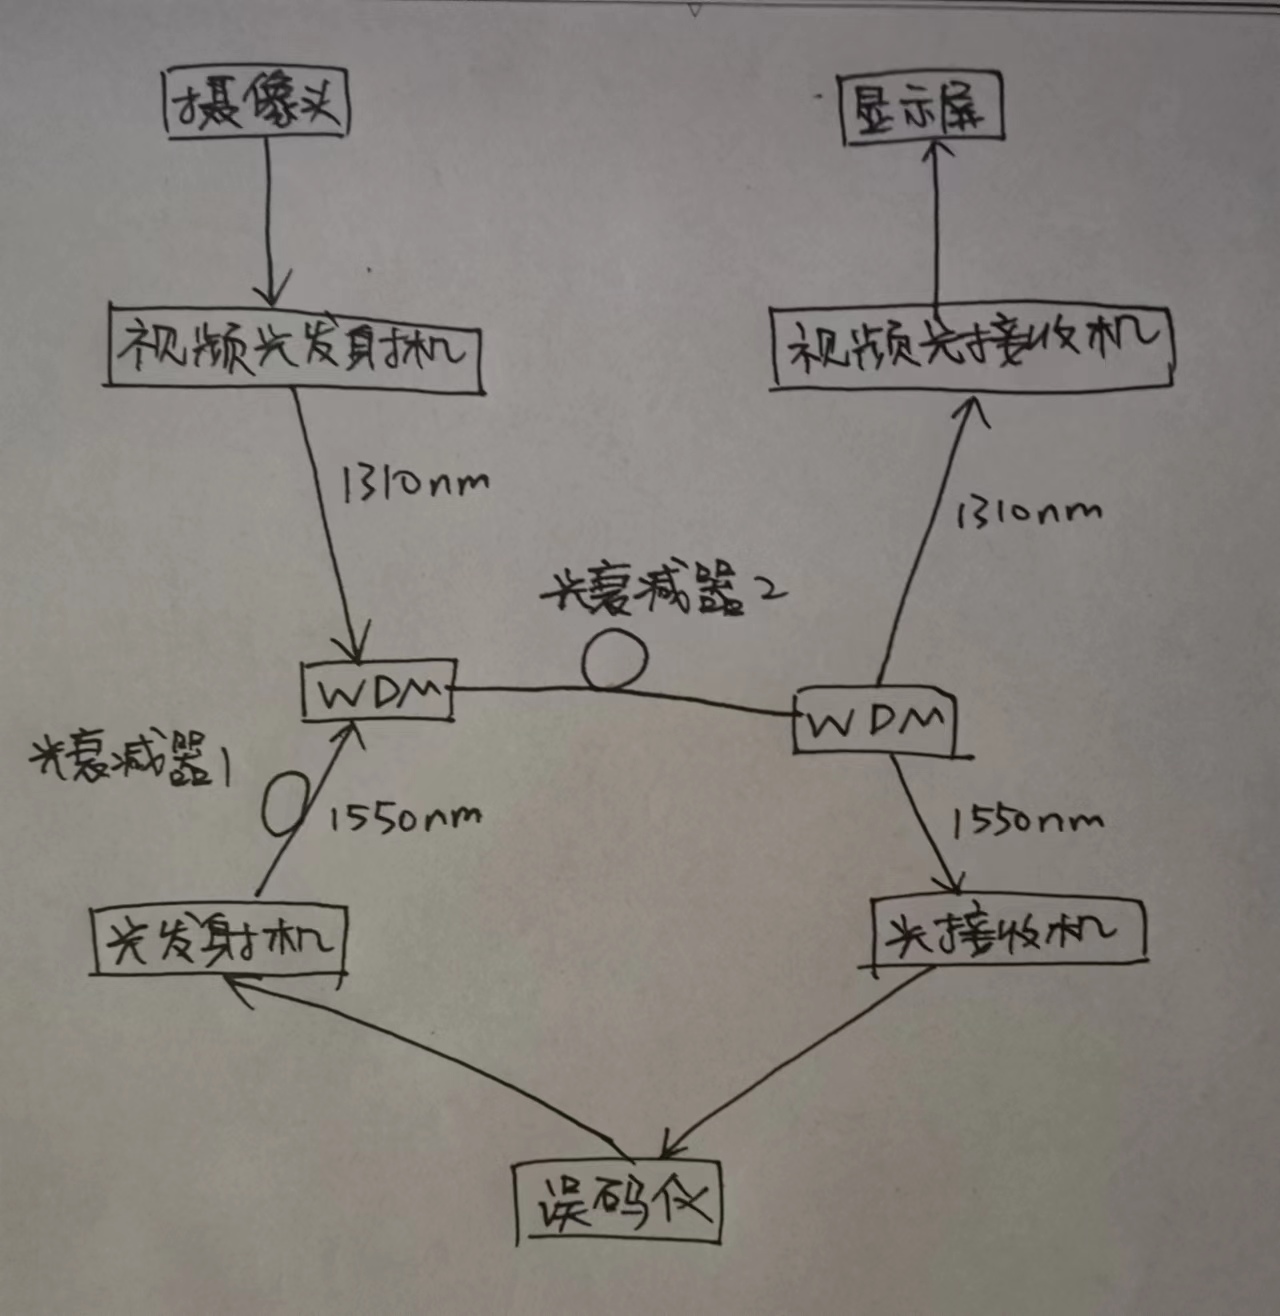 摄像头
显示屏
视频光发射机
视频光接收机
1310nm
1310nm
光衰减器2
WDM
WDM
光衰减器1
1550nm
1550nm
光发射机
光接收机
误码仪